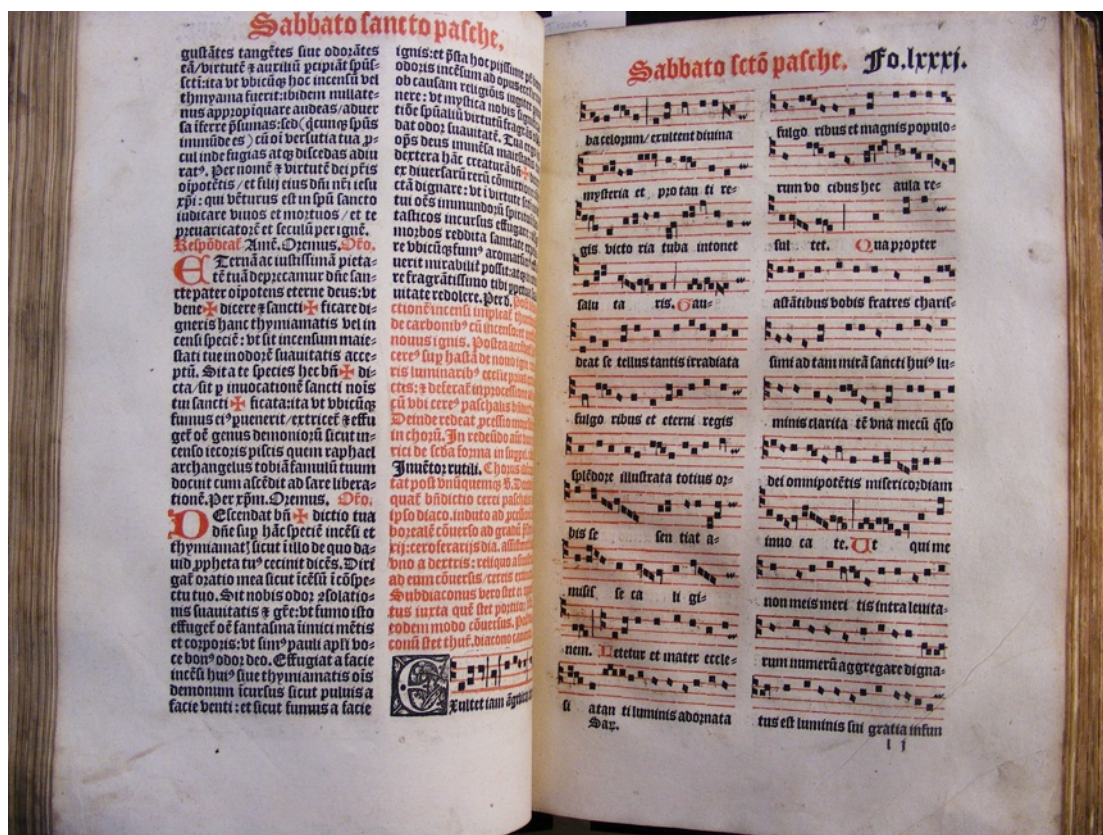 Sabbato sancto pasche.
gustātes tangētes siue odorātes
eā/virtutē ⁊ auxiliū ꝑcipiāt spūs-
scti:ita vt vbicūqꝫ hoc incensū vel
thymyama fuerit:ibidem nullate-
nus appropiquare audeas/aduer
sa īferre p̄sumas:sed (q̄cunqꝫ spūs
immūde es) cū oī versutia tua ꝓ-
cul inde fugias atqꝫ discedas adiu
ratꝰ. Per nomē ⁊ virtutē dei pr̄is
oīpotētis/ et filij eius dn̄i nr̄i iesu
xp̄i: qui vēturus est in spū sancto
iudicare viuos et mortuos / et te
preuaricatorē et seculū per ignē.
Respōdeat̄ Amē. Oremus. Or̄o.
ETernā ac iustissimā pieta-
tē tuā deprecamur dn̄e san-
cte pater oīpotens eterne deus: vt
bene ✠ dicere ⁊ sancti ✠ ficare di-
gneris hanc thymiamatis vel in
censi speciē : vt sit incensum maie-
stati tue in odorē suauitatis acce-
ptū. Sit a te species hec bn̄ ✠ di-
cta/sit ꝑ inuocationē sancti noīs
tui sancti ✠ ficata:ita vt vbicūqꝫ
fumus eiꝰ ꝑuenerit/ extricet̄ ⁊ effu
get̄ oē genus demoniorū sicut in-
censo iecoris piscis quem raphael
archangelus tobiā famulū tuum
docuit cum ascēdit ad sare libera-
tionē. Per xp̄m. Oremus. Or̄o.
DEscendat bn̄ ✠ dictio tua
dn̄e suꝑ hāc speciē incēsi et
thymiamatꝭ sicut ī illo de quo da-
uid ꝓpheta tuꝰ cecinit dicēs. Diri
gat̄ oratio mea sicut īcēsū ī cōspe-
ctu tuo. Sit nobis odor ꝯsolatio-
nis suauitatis ⁊ gr̄e: vt fumo isto
effuget̄ oē fantasma īimici mētis
et corporis: vt simꝰ pauli apl̄i bo-
ce bonꝰ odor deo. Effugiat a facie
incēsi huiꝰ siue thymiamatis oīs
demonum īcursus sicut puluis a
facie venti : et sicut fumus a facie
ignis:et p̄sta hoc pijssime
odoris incēsum ad opus
ob causam religiōis iugiter
nere: vt mystica nobis
tiōe spūaliū virtutū fragrās
dat odor suauitatē. Tua
op̄s deus immēsa maiestatis
dextera hāc creaturā bn̄ ✠
ex diuersarū rerū cōmixtione
ctā dignare: vt ī virtute
tui oēs immundorū spirituū
tasticos incursus effugare
morbos reddita sanitate
re vbicūqꝫ fumꝰ aromatum
uerit mirabili possit: atqꝫ
re fragrātissimo tibi perpetua
uitate redolere. Per d.
ctionē incensi impleat̄
de carbonibꝰ cū incenso:
nouus ignis. Postea
cereꝰ suꝑ hastā de nouo igne
ris luminaribꝰ ecclīe prius
ctes: ⁊ deferat̄ in processione
cū vbi cereꝰ paschalis
Deinde redeat ꝓcessio
in chorū. In redeūdo aūt
rici de scd̄a forma in
Inuētor rutili. Chorus
tat post vnūquemqꝫ V̄.
quat̄ bn̄dictio cerei paschalis
ipso diaco. induto ad
borealē cōuerso ad gradū
xij: ceroferarijs dia.
vno a dextris : reliquo a
ad eum cōuersus/cereis
Subdiaconus vero stet
tus iuxta quē stet
eodem modo cōuersus.
conū stet thur̄. diacono
EXultet iam āgelica
Sabbato sctō pasche. Fo.lxxxj.
ba celorum/ exultent diuina
mysteria et pro tan ti re-
gis victo ria tuba intonet
salu ta ris. Gau-
deat se tellus tantis irradiata
fulgo ribus et eterni regis
splēdore illustrata totius or-
bis se sen tiat a-
misis se ca li gi-
nem. Letetur et mater eccle-
si a tan ti luminis adornata
Sar.
fulgo ribus et magnis populo-
rum vo cibus hec aula re-
sul tet. Quapropter
astātibus vobis fratres charis-
simi ad tam mirā sancti huiꝰ lu-
minis clarita tē vna mecū q̄so
dei omnipotētis misericordiam
inuo ca te. Ut qui me
non meis meri tis intra leuita-
rum numerū aggregare digna-
tus est luminis sui gratia infun
l j